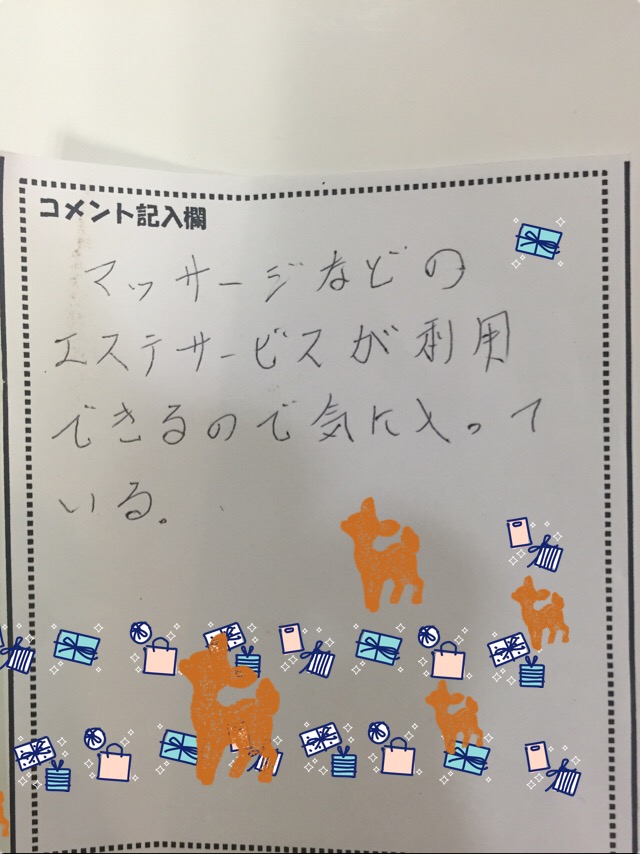 コメント記入欄
マッサージなどの
エステサービスが利用
できるので気に入って
いる。